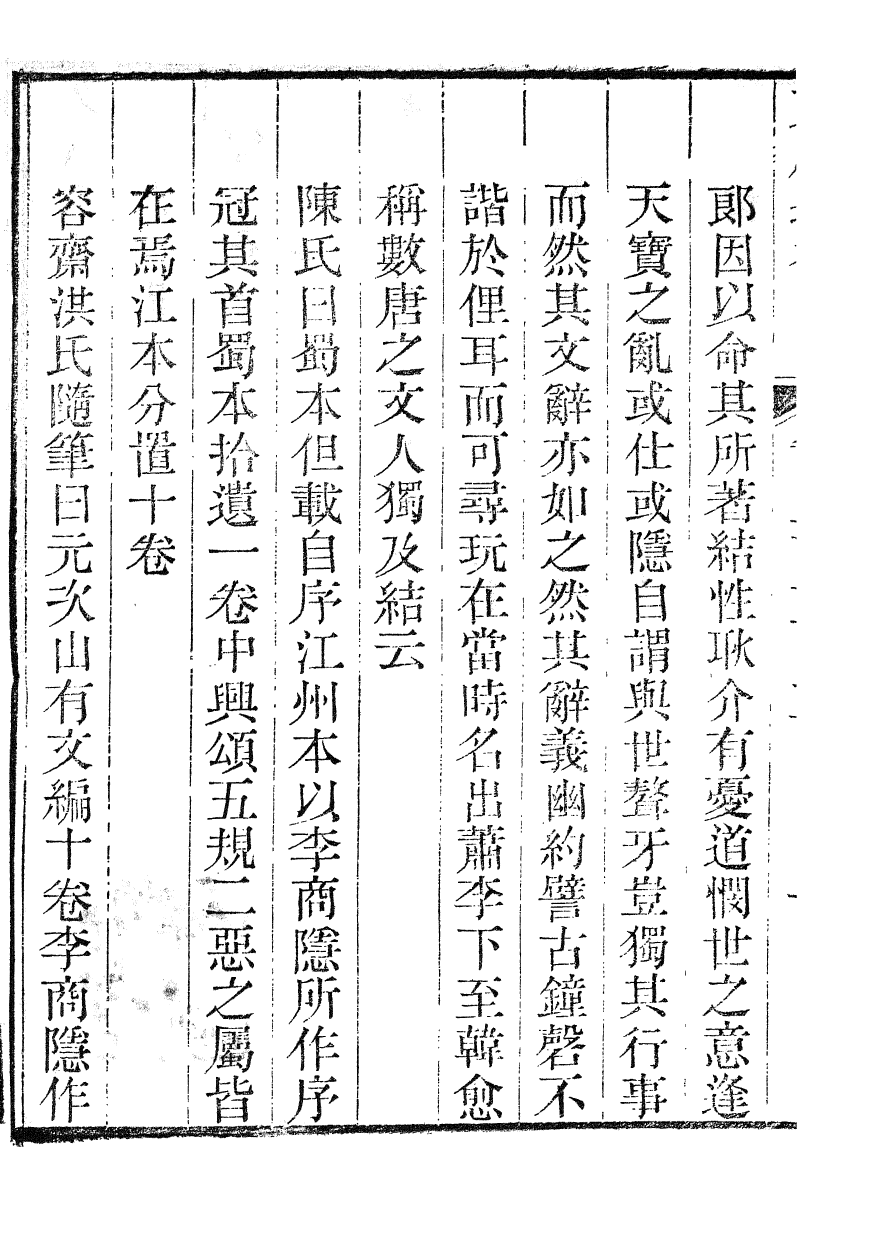 郞因以命其所著結性耿介有憂道憫世之意逢
天寶之亂或仕或隱自謂與世聱牙豈獨其行事
而然其文辭亦如之然其辭義幽約譬古鐘磬不
諧於俚耳而可尋玩在當時名出蕭李下至韓愈
稱數唐之文人獨及結云
陳氏曰蜀本但載自序江州本以李商隱所作序
冠其首蜀本拾遺一卷中興頌五規二惡之屬皆
在焉江本分置十卷
容齋洪氏隨筆曰元次山有文編十卷李商隱作